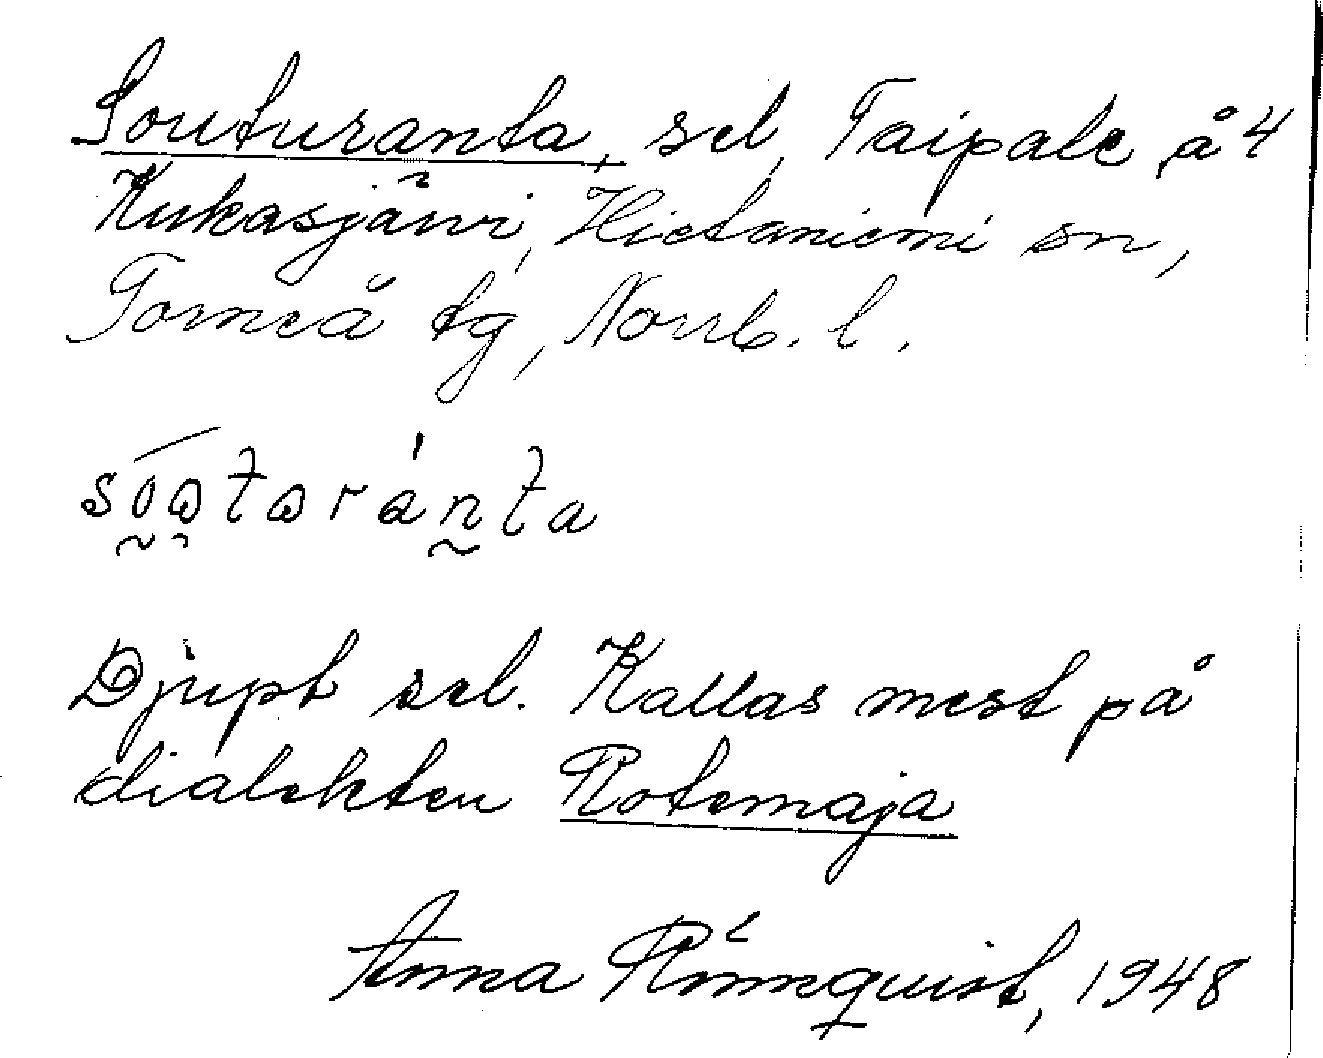 Souturanta, sel, Taipale, å 4
Kukasjärvi, Hietaniemi sn,
Torneå tg, Norrb. l.
Djupt sel. Kallas mest på
dialekten Rotemaja
Anna Rönnquist, 1948